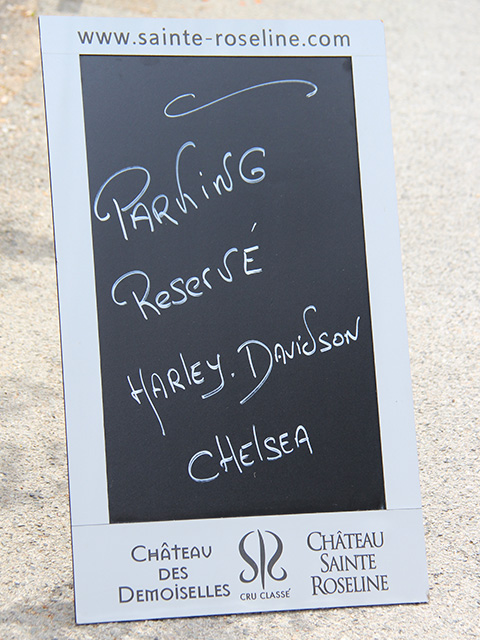 www.sainte-roseline.com
Parking
Reservé
Harley. Davidson
Chelsea
CHÂTEAU
DES
DEMOISELLES
CRU CLASSÉ
CHÂTEAU
SAINTE
ROSELINE